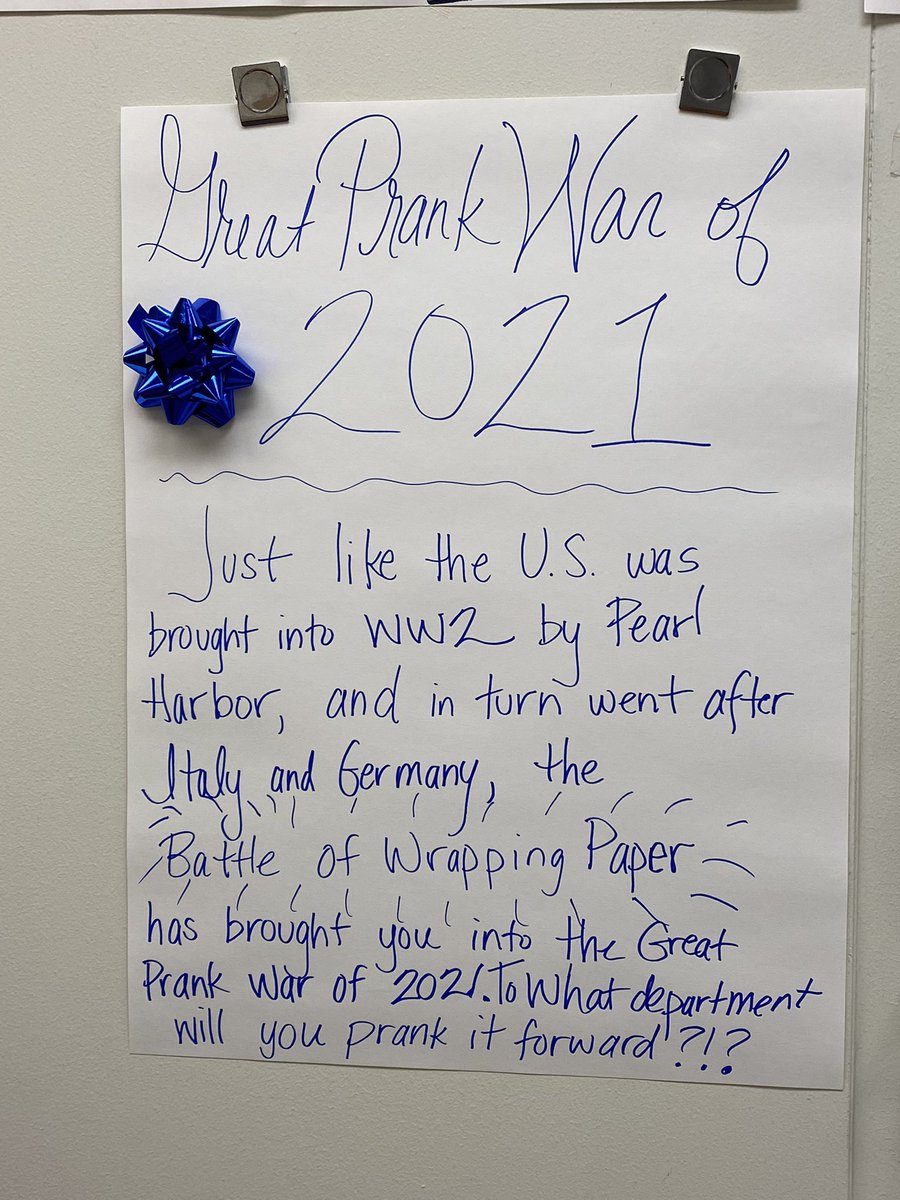 Great Prank War of
2021
Just like the U.S. was
brought into WW2 by Pearl
Harbor, and in turn went after
Italy and Germany, the
Battle of Wrapping Paper
has brought you into the Great
Prank War of 2021. To What department
will you prank it forward?!?